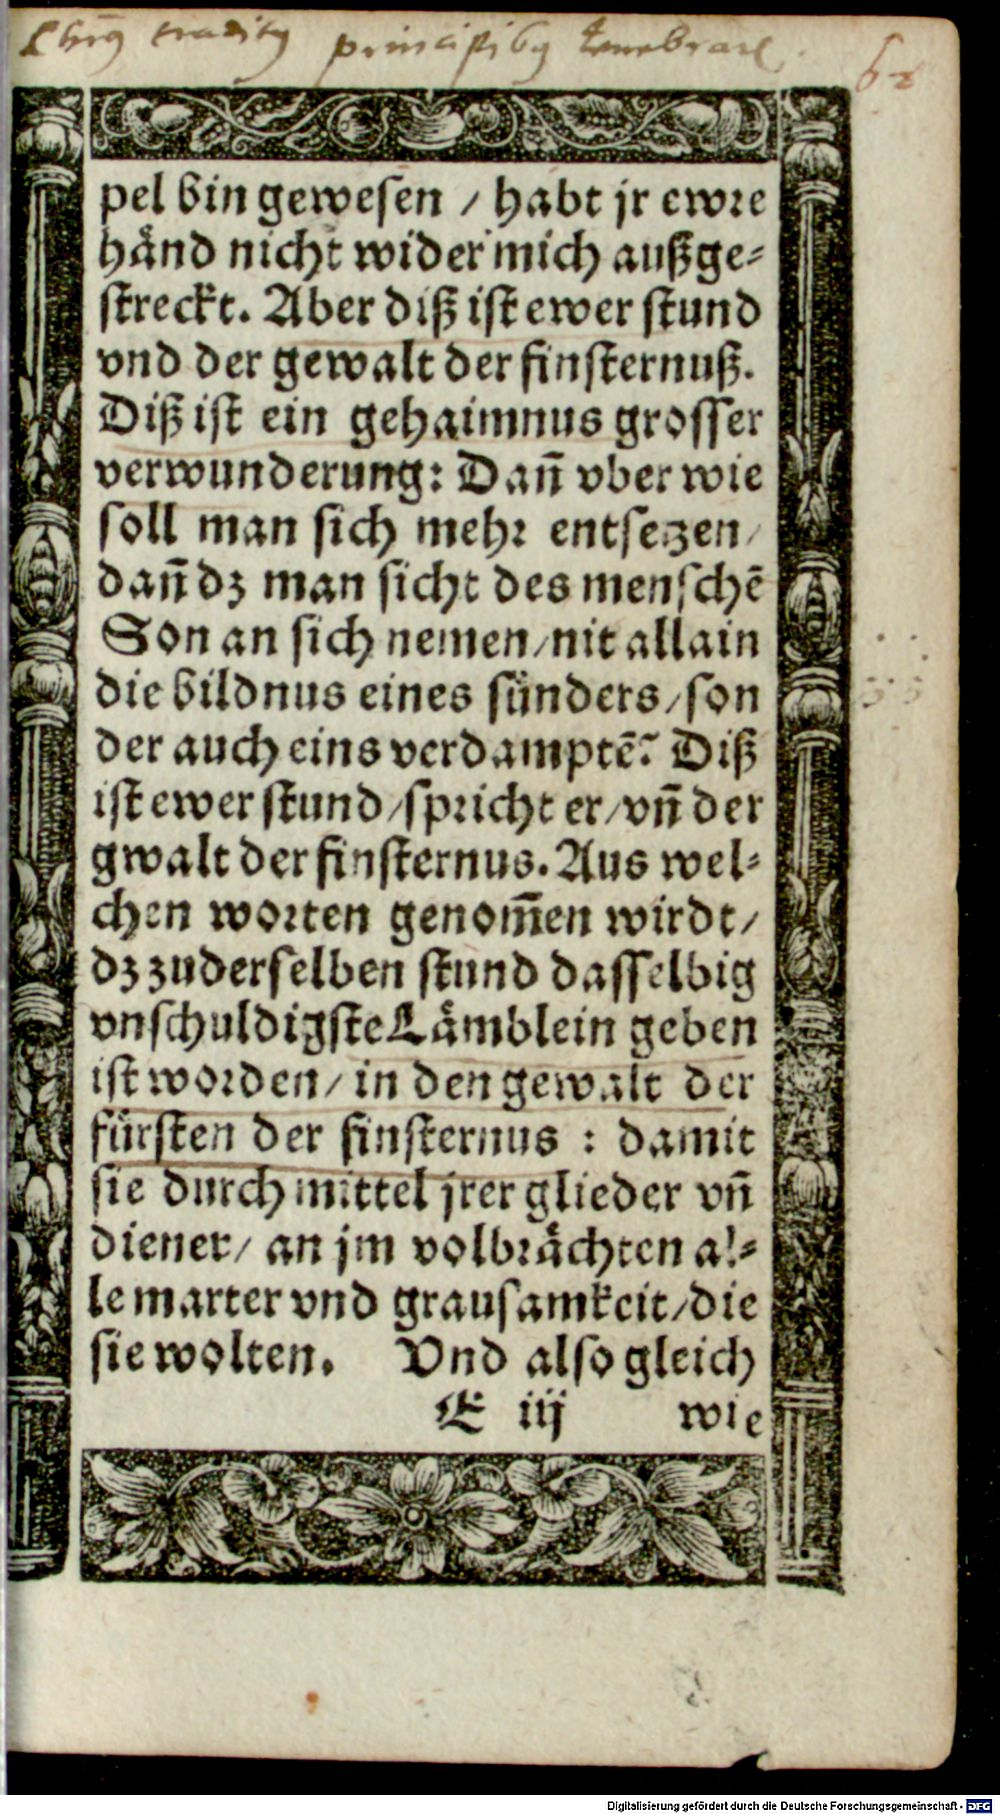 Chr̃us traditus principibus tenebrarũ.
62
pel bin gewesen / habt jr ewre
hånd nicht wider mich außge-
streckt. Aber diß ist ewer stund
vnd der gewalt der finsternuß.
Diß ist ein gehaimnus grosser
verwunderung: Dañ vber wie
soll man sich mehr entsetzen/
dañ dz man sicht des menschẽ
Son an sich nemen/nit allain
die bildnus eines sünders/son
der auch eins verdamptẽ? Diß
ist ewer stund/spricht er/vñ der
gwalt der finsternus. Aus wel-
chen worten genom̃en wirdt/
dz zu derselben stund dasselbig
vnschuldigste Låmblein geben
ist worden/ in den gewalt der
fürsten der finsternus : damit
sie durch mittel jrer glieder vñ
diener/ an jm volbråchten al-
le marter vnd grausamkeit/die
sie wolten. Vnd also gleich
E iij wie
Digitalisierung gefördert durch die Deutsche Forschungsgemeinschaft - DFG